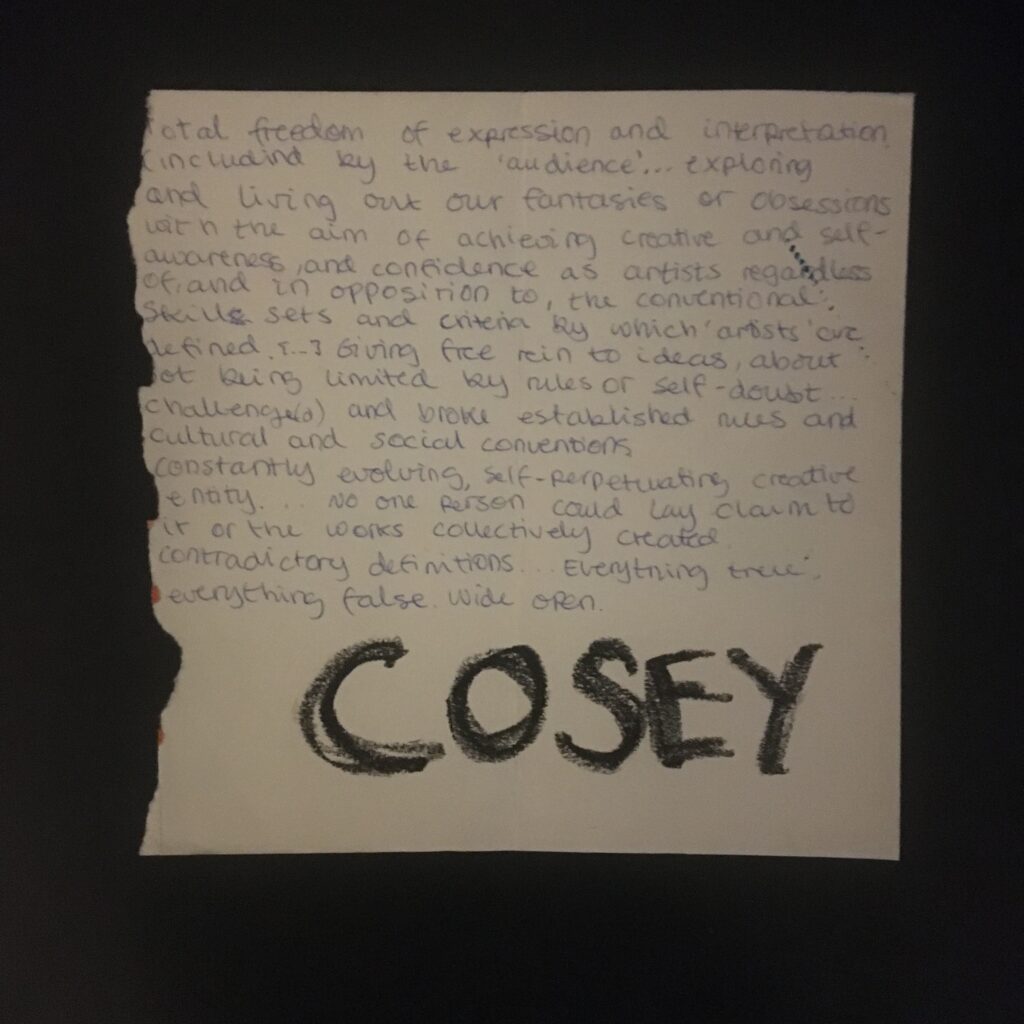 Total freedom of expression and interpretation
(includind by the 'audience'... exploring
and living out our fantasies or obsessions
with the aim of achieving creative and self-
awareness, and confidence as artists regardless
of, and in opposition to, the conventional
skills sets and criteria by which 'artists' are
defined. [...] Giving free rein to ideas, about
not being limited by rules or self-doubt...
challenge(s) and broke established rules and
cultural and social conventions
constantly evolving, self-perpetuating creative
entity. ... No one person could lay claim to
it or the works collectively created.
contradictory definitions... Everything true,
everything false. Wide open.
COSEY